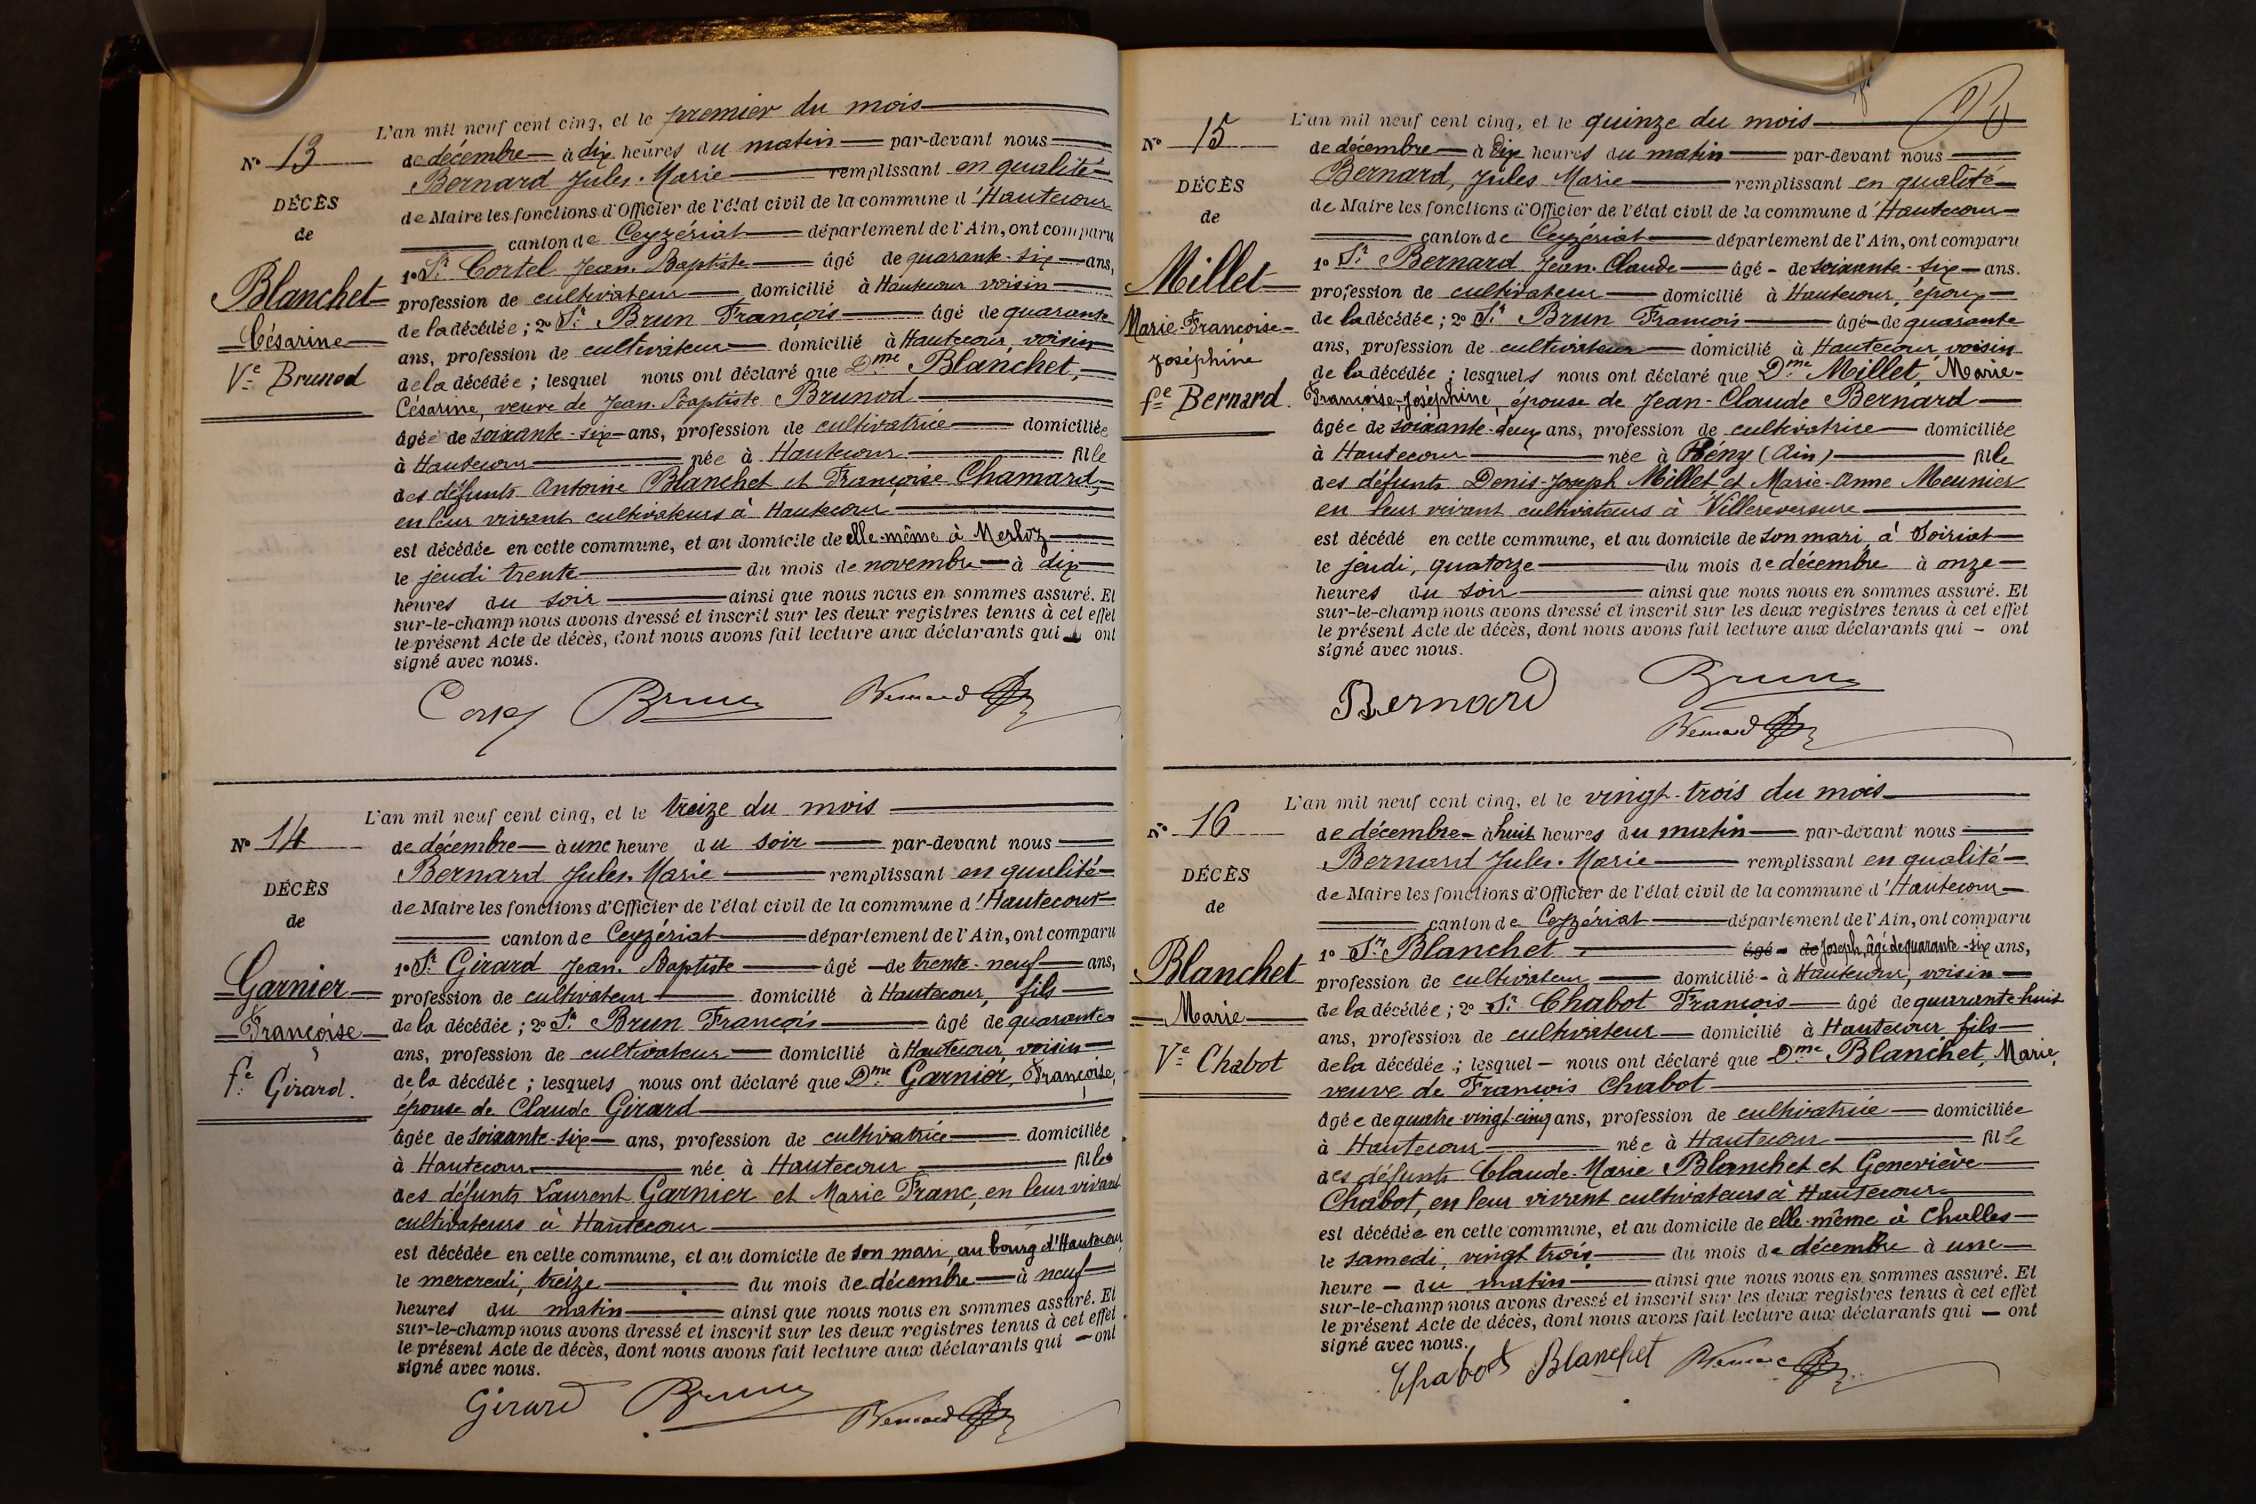 L'an mil neuf cent cinq, et le premier du mois
N° 13
de décembre à dix heures du matin par-devant nous
Bernard Jules-Marie remplissant en qualité
DÉCÈS
de Maire les fonctions d'Officier de l'état civil de la commune d'Hautecour
de
canton de Ceyzériat département de l'Ain, ont comparu
1° Sr Cortel Jean-Baptiste âgé de quarante-six ans,
Blanchet
profession de cultivateur domicilié à Hautecour voisin
de la décédée ; 2° Sr Brun François âgé de quarante
Césarine
ans, profession de cultivateur domicilié à Hautecour, voisin
Ve Brunod
de la décédée ; lesquel nous ont déclaré que Dme Blanchet,
Césarine, veuve de Jean-Baptiste Brunod
âgée de soixante-six ans, profession de cultivatrice domiciliée
à Hautecour née à Hautecour fille
des défunts Antoine Blanchet et Françoise Chamard,
en leur vivant cultivateurs à Hautecour
est décédée en cette commune, et au domicile de elle-même à Merloz
le jeudi trente du mois de novembre à dix
heures du soir ainsi que nous nous en sommes assuré. Et
sur-le-champ nous avons dressé et inscrit sur les deux registres tenus à cet effet
le présent Acte de décès, dont nous avons fait lecture aux déclarants qui ont
signé avec nous.
Brun Bernard
L'an mil neuf cent cinq, et le treize du mois
N° 14
de décembre à une heure du soir par-devant nous
Bernard Jules-Marie remplissant en qualité
DÉCÈS
de Maire les fonctions d'Officier de l'état civil de la commune d'Hautecour
de
canton de Ceyzériat département de l'Ain, ont comparu
1° Sr Girard Jean-Baptiste âgé de trente-neuf ans,
Garnier
profession de cultivateur domicilié à Hautecour, fils
Françoise
de la décédée ; 2° Sr Brun François âgé de quarante
ans, profession de cultivateur domicilié à Hautecour, voisin
fe Girard.
de la décédée ; lesquels nous ont déclaré que Dme Garnier, Françoise,
épouse de Claude Girard
âgée de soixante-six ans, profession de cultivatrice domiciliée
à Hautecour née à Hautecour fille
des défunts Laurent Garnier et Marie Franc, en leur vivant
cultivateurs à Hautecour
est décédée en cette commune, et au domicile de son mari, au bourg d'Hautecour
le mercredi, treize du mois de décembre à neuf
heures du matin ainsi que nous nous en sommes assuré. Et
sur-le-champ nous avons dressé et inscrit sur les deux registres tenus à cet effet
le présent Acte de décès, dont nous avons fait lecture aux déclarants qui ont
signé avec nous.
Girard Brun Bernard
L'an mil neuf cent cinq, et le quinze du mois
N° 15
de décembre à dix heures du matin par-devant nous
Bernard, Jules Marie remplissant en qualité
DÉCÈS
de Maire les fonctions d'Officier de l'état civil de la commune d'Hautecour
de
canton de Ceyzériat département de l'Ain, ont comparu
1° Sr Bernard Jean-Claude âgé de soixante-six ans.
Millet
profession de cultivateur domicilié à Hautecour, époux
Marie-Françoise-
de la décédée ; 2° Sr Brun François âgé de quarante
Joséphine
ans, profession de cultivateur domicilié à Hautecour voisin
de la décédée ; lesquels nous ont déclaré que Dme Millet, Marie-
fe Bernard.
Françoise-Joséphine, épouse de Jean-Claude Bernard
âgée de soixante-deux ans, profession de cultivatrice domiciliée
à Hautecour née à Bény (Ain) fille
des défunts Denis-Joseph Millet et Marie-Anne Meunier
en leur vivant cultivateurs à Villereversure
est décédé en cette commune, et au domicile de son mari, à Soiriat
le jeudi, quatorze du mois de décembre à onze
heures du soir ainsi que nous nous en sommes assuré. Et
sur-le-champ nous avons dressé et inscrit sur les deux registres tenus à cet effet
le présent Acte de décès, dont nous avons fait lecture aux déclarants qui - ont
signé avec nous.
Bernard Brun
Bernard
L'an mil neuf cent cinq, et le vingt-trois du mois
N° 16
de décembre à huit heures du matin par-devant nous
Bernard Jules-Marie remplissant en qualité
DÉCÈS
de Maire les fonctions d'Officier de l'état civil de la commune d'Hautecour
de
canton de Ceyzériat département de l'Ain, ont comparu
1° Sr Blanchet âgé de Joseph, âgé de quarante-six ans,
Blanchet
profession de cultivateur domicilié à Hautecour, voisin
Marie
de la décédée ; 2° Sr Chabot François âgé de quarante huit
ans, profession de cultivateur domicilié à Hautecour fils
Ve Chabot
de la décédée ; lesquel nous ont déclaré que Dme Blanchet, Marie,
veuve de François Chabot
âgée de quatre-vingt-cinq ans, profession de cultivatrice domiciliée
à Hautecour née à Hautecour fille
des défunts Claude-Marie Blanchet et Geneviève
Chabot, en leur vivant cultivateurs à Hautecour
est décédée en cette commune, et au domicile de elle-même à Challes
le samedi, vingt trois du mois de décembre à une
heure du matin ainsi que nous nous en sommes assuré. Et
sur-le-champ nous avons dressé et inscrit sur les deux registres tenus à cet effet
le présent Acte de décès, dont nous avons fait lecture aux déclarants qui ont
signé avec nous.
Chabot Blanchet Bernard